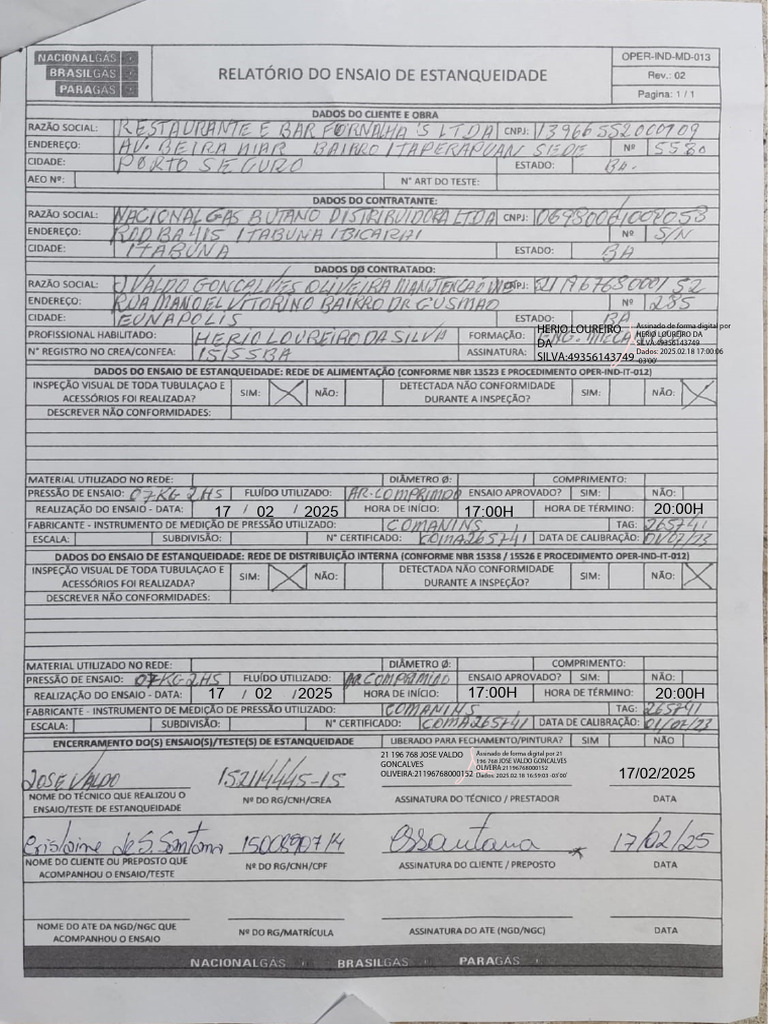 NACIONALGÁS
BRASILGÁS
PARAGÁS
RELATÓRIO DO ENSAIO DE ESTANQUEIDADE
OPER-IND-MD-013
Rev.: 02
Pagina: 1 / 1
DADOS DO CLIENTE E OBRA
RAZÃO SOCIAL: RESTAURANTE E BAR FORNALHA'S LTDA CNPJ: 13966552000109
ENDEREÇO: AV. BEIRA MAR BAIRRO ITAPERAPUAN SIEDE Nº 5580
CIDADE: PORTO SEGURO ESTADO: BA.
AEO Nº: N° ART DO TESTE:
DADOS DO CONTRATANTE:
RAZÃO SOCIAL: NACIONAL GAS BUTANO DISTRIBUIDORA LTDA CNPJ: 06980061009053
ENDEREÇO: ROD BA 415 ITABUNA IBICARAI Nº S/N
CIDADE: ITABUNA ESTADO: BA
DADOS DO CONTRATADO:
RAZÃO SOCIAL: J VALDO GONCALVES OLIVEIRA MANUTENCAO CNPJ: 21196768000152
ENDEREÇO: RUA MANOEL VITORINO BAIRRO DR GUSMAO Nº 285
CIDADE: EUNAPOLIS ESTADO: BA
PROFISSIONAL HABILITADO: HERIO LOUREIRO DA SILVA FORMAÇÃO: ENG. MECA
N° REGISTRO NO CREA/CONFEA: 15155BA ASSINATURA:
HERIO LOUREIRO
DA
SILVA:49356143749
Assinado de forma digital por
HERIO LOUREIRO DA
SILVA:49356143749
Dados: 2025.02.18 17:00:06
-03'00'
DADOS DO ENSAIO DE ESTANQUEIDADE: REDE DE ALIMENTAÇÃO (CONFORME NBR 13523 E PROCEDIMENTO OPER-IND-IT-012)
INSPEÇÃO VISUAL DE TODA TUBULAÇAO E ACESSÓRIOS FOI REALIZADA? SIM: X NÃO: DETECTADA NÃO CONFORMIDADE DURANTE A INSPEÇÃO? SIM: NÃO: X
DESCREVER NÃO CONFORMIDADES:
MATERIAL UTILIZADO NO REDE: DIÂMETRO Ø: COMPRIMENTO:
PRESSÃO DE ENSAIO: 07 KG 2HS FLUÍDO UTILIZADO: AR-COMPRIMIDO ENSAIO APROVADO? SIM: NÃO:
REALIZAÇÃO DO ENSAIO - DATA: 17 / 02 / 2025 HORA DE INÍCIO: 17:00H HORA DE TÉRMINO: 20:00H
FABRICANTE - INSTRUMENTO DE MEDIÇÃO DE PRESSÃO UTILIZADO: COMANINS TAG: 265741
ESCALA: SUBDIVISÃO: N° CERTIFICADO: COMA265741 DATA DE CALIBRAÇÃO: 01/07/23
DADOS DO ENSAIO DE ESTANQUEIDADE: REDE DE DISTRIBUIÇÃO INTERNA (CONFORME NBR 15358 / 15526 E PROCEDIMENTO OPER-IND-IT-012)
INSPEÇÃO VISUAL DE TODA TUBULAÇAO E ACESSÓRIOS FOI REALIZADA? SIM: X NÃO: DETECTADA NÃO CONFORMIDADE DURANTE A INSPEÇÃO? SIM: NÃO: X
DESCREVER NÃO CONFORMIDADES:
MATERIAL UTILIZADO NO REDE: DIÂMETRO Ø: COMPRIMENTO:
PRESSÃO DE ENSAIO: 07 KG 2HS FLUÍDO UTILIZADO: AR COMPRIMIDO ENSAIO APROVADO? SIM: NÃO:
REALIZAÇÃO DO ENSAIO - DATA: 17 / 02 / 2025 HORA DE INÍCIO: 17:00H HORA DE TÉRMINO: 20:00H
FABRICANTE - INSTRUMENTO DE MEDIÇÃO DE PRESSÃO UTILIZADO: COMANINS TAG: 265741
ESCALA: SUBDIVISÃO: N° CERTIFICADO: COMA265741 DATA DE CALIBRAÇÃO: 01/07/23
ENCERRAMENTO DO(S) ENSAIO(S)/TESTE(S) DE ESTANQUEIDADE LIBERADO PARA FECHAMENTO/PINTURA? SIM NÃO
21 196 768 JOSE VALDO
GONCALVES
OLIVEIRA:21196768000152
Assinado de forma digital por 21
196 768 JOSE VALDO GONCALVES
OLIVEIRA:21196768000152
Dados: 2025.02.18 16:59:03 -03'00'
JOSE VALDO 152114445-15 17/02/2025
NOME DO TÉCNICO QUE REALIZOU O ENSAIO/TESTE DE ESTANQUEIDADE Nº DO RG/CNH/CREA ASSINATURA DO TÉCNICO / PRESTADOR DATA
Crislaine de S. Santana 1500890714 CSSantana 17/02/25
NOME DO CLIENTE OU PREPOSTO QUE ACOMPANHOU O ENSAIO/TESTE Nº DO RG/CNH/CPF ASSINATURA DO CLIENTE / PREPOSTO DATA
NOME DO ATE DA NGD/NGC QUE ACOMPANHOU O ENSAIO Nº DO RG/MATRÍCULA ASSINATURA DO ATE (NGD/NGC) DATA
NACIONALGÁS BRASILGÁS PARAGÁS